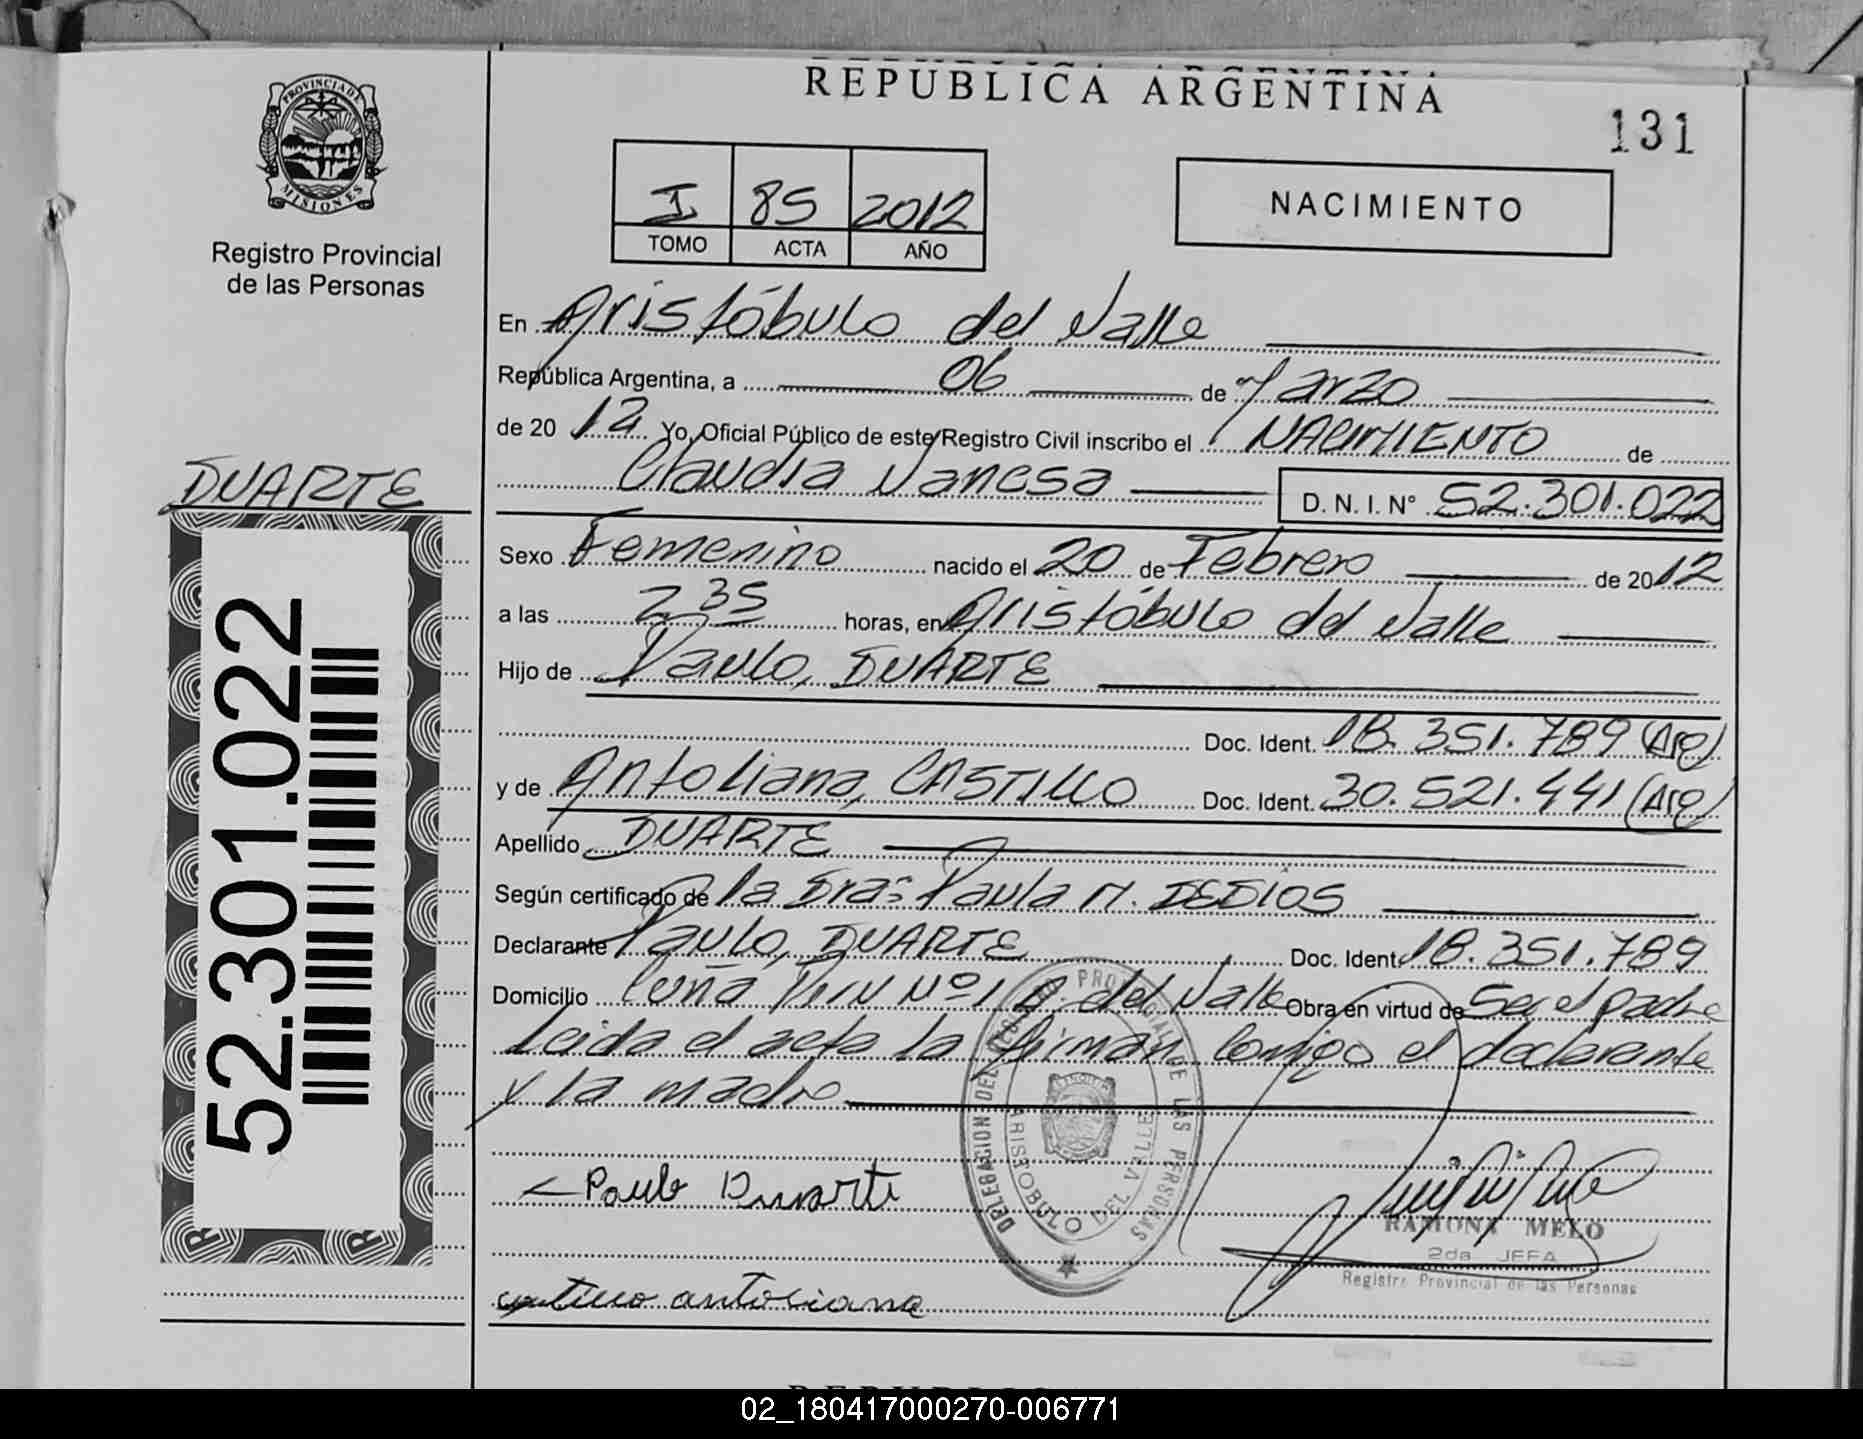 REPUBLICA ARGENTINA
131
PROVINCIA DE
MISIONES
Registro Provincial
de las Personas
I 85 2012
TOMO ACTA AÑO
NACIMIENTO
En Aristóbulo del Valle
República Argentina, a 06 de Marzo
de 2012 Yo, Oficial Público de este Registro Civil inscribo el NACIMIENTO de
Claudia Vanesa D. N. I. Nº 52.301.022
DUARTE
52.301.022
Sexo Femenino nacido el 20 de Febrero de 2012
a las 2 35 horas, en Aristóbulo del Valle
Hijo de Paulo, DUARTE
Doc. Ident. 18.351.789 (Arg)
y de Antoliana, CASTILLO Doc. Ident. 30.521.441 (Arg)
Apellido DUARTE
Según certificado de la Dra: Paula M. DEDIOS
Declarante Paulo, DUARTE Doc. Ident. 18.351.789
Domicilio Cuña Pirú Nº 1 A. del Valle Obra en virtud de Ser el padre
Leida el acta la firman conmigo el declarante
y la madre
DELEGACION DEL REGISTRO PROVINCIAL DE LAS PERSONAS
ARISTOBULO DEL VALLE
Paulo Duarte
RAMONA MELO
2da JEFA
Registro Provincial de las Personas
castillo antoliana
02_180417000270-006771